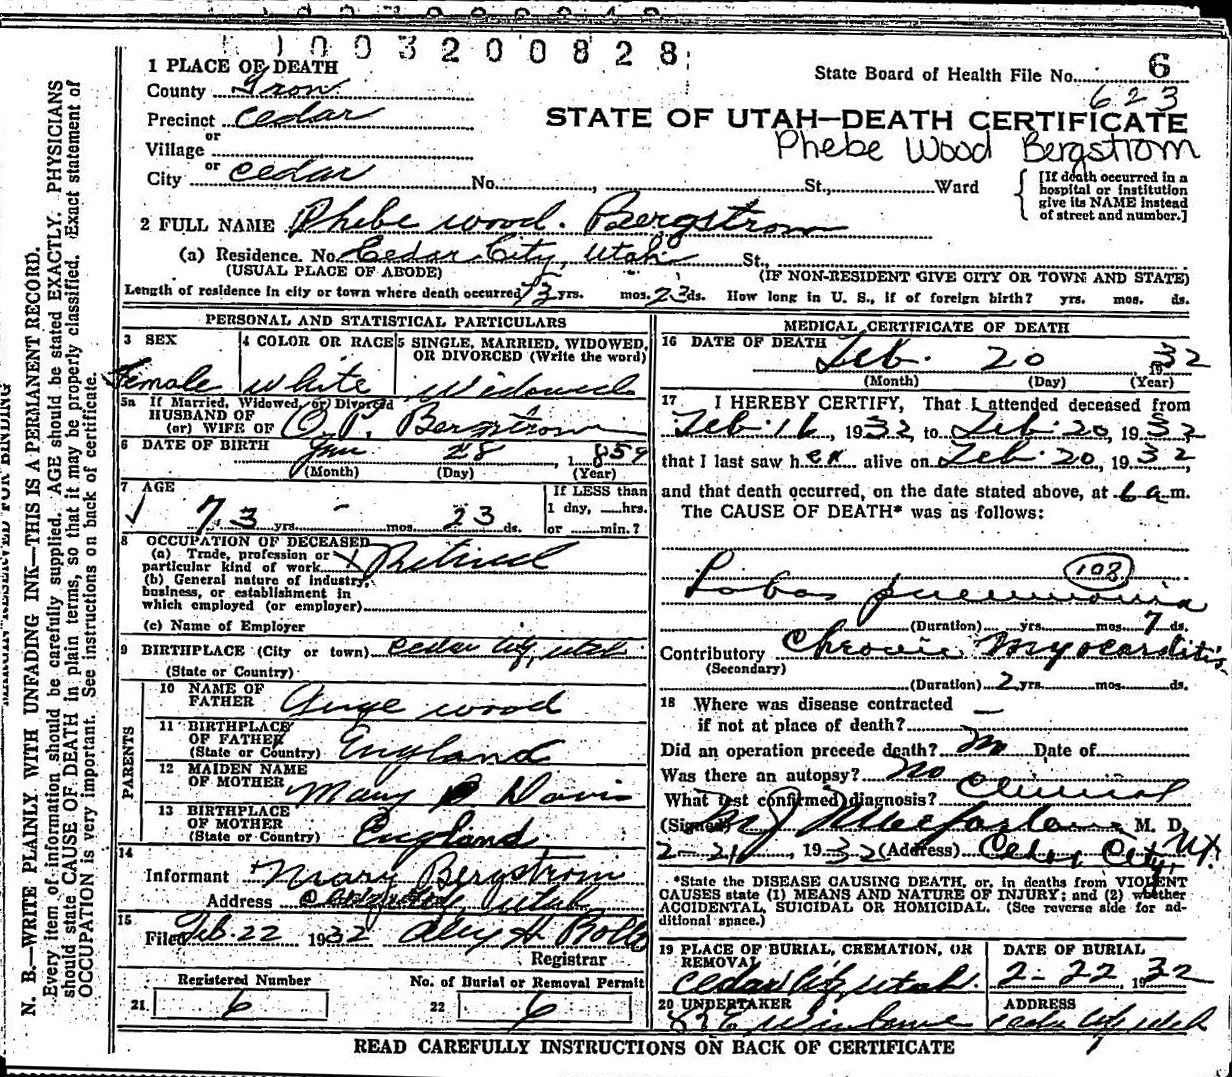 1003200828
1 PLACE OF DEATH
State Board of Health File No. 6
County Iron
623
Precinct Cedar
STATE OF UTAH—DEATH CERTIFICATE
or
Phebe Wood Bergstrom
Village
or
City Cedar No. , St., Ward
[If death occurred in a
hospital or institution
give its NAME instead
of street and number.]
2 FULL NAME Phebe Wood. Bergstrom
(a) Residence. No. Cedar City, Utah St.,
(USUAL PLACE OF ABODE) (IF NON-RESIDENT GIVE CITY OR TOWN AND STATE)
Length of residence in city or town where death occurred 73 yrs. mos. 23 ds. How long in U. S., if of foreign birth? yrs. mos. ds.
PERSONAL AND STATISTICAL PARTICULARS
3 SEX
4 COLOR OR RACE
5 SINGLE, MARRIED, WIDOWED,
OR DIVORCED (Write the word)
Female White Widowed
5a If Married, Widowed, or Divorced
HUSBAND OF
(or) WIFE OF O. P. Bergstrom
6 DATE OF BIRTH Jan 28, 1859
(Month) (Day) (Year)
7 AGE
If LESS than
1 day, hrs.
73 yrs. - mos. 23 ds. or min.?
8 OCCUPATION OF DECEASED
(a) Trade, profession or
particular kind of work X Retired
(b) General nature of industry,
business, or establishment in
which employed (or employer)
(c) Name of Employer
9 BIRTHPLACE (City or town) Cedar City, Utah
(State or Country)
PARENTS
10 NAME OF
FATHER George Wood
11 BIRTHPLACE
OF FATHER
(State or Country) England
12 MAIDEN NAME
OF MOTHER Mary Davis
13 BIRTHPLACE
OF MOTHER
(State or Country) England
14
Informant Mary Bergstrom
Address Cedar City Utah
15
Filed Feb. 22 1932
Registrar
Registered Number No. of Burial or Removal Permit
21 6 22 6
MEDICAL CERTIFICATE OF DEATH
16 DATE OF DEATH
Feb. 20 1932
(Month) (Day) (Year)
17 I HEREBY CERTIFY, That I attended deceased from
Feb. 16, 1932, to Feb. 20, 1932
that I last saw her alive on Feb. 20, 1932,
and that death occurred, on the date stated above, at 6 a m.
The CAUSE OF DEATH* was as follows:
108
Lobar pneumonia
(Duration) yrs. mos. 7 ds.
Contributory Chronic Myocarditis
(Secondary)
(Duration) 2 yrs. mos. ds.
18 Where was disease contracted
if not at place of death? —
Did an operation precede death? No Date of
Was there an autopsy? No
What test confirmed diagnosis? Clinical
(Signed) M J Macfarlane M. D.
2-21, 1932 (Address) Cedar City, Ut
*State the DISEASE CAUSING DEATH, or, in deaths from VIOLENT
CAUSES state (1) MEANS AND NATURE OF INJURY; and (2) whether
ACCIDENTAL, SUICIDAL OR HOMICIDAL. (See reverse side for ad-
ditional space.)
19 PLACE OF BURIAL, CREMATION, OR
REMOVAL
Cedar City, Utah.
DATE OF BURIAL
2-22 1932
20 UNDERTAKER ADDRESS
Cedar City Utah
READ CAREFULLY INSTRUCTIONS ON BACK OF CERTIFICATE
N. B.—WRITE PLAINLY WITH UNFADING INK—THIS IS A PERMANENT RECORD.
Every item of information should be carefully supplied. AGE should be stated EXACTLY. PHYSICIANS
should state CAUSE OF DEATH in plain terms, so that it may be properly classified. Exact statement of
OCCUPATION is very important. See instructions on back of certificate.